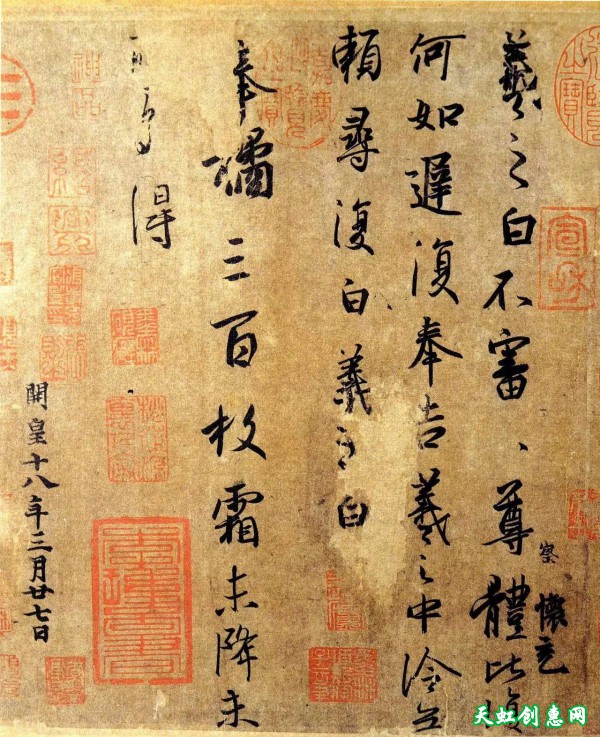 羲之白不審、尊體比復
察 懷充
何如遲復奉告羲之中冷無
賴尋復白羲之白
奉橘三百枚霜未降未
可多得
開皇十八年三月廿七日
宣和
神品
天虹创惠网